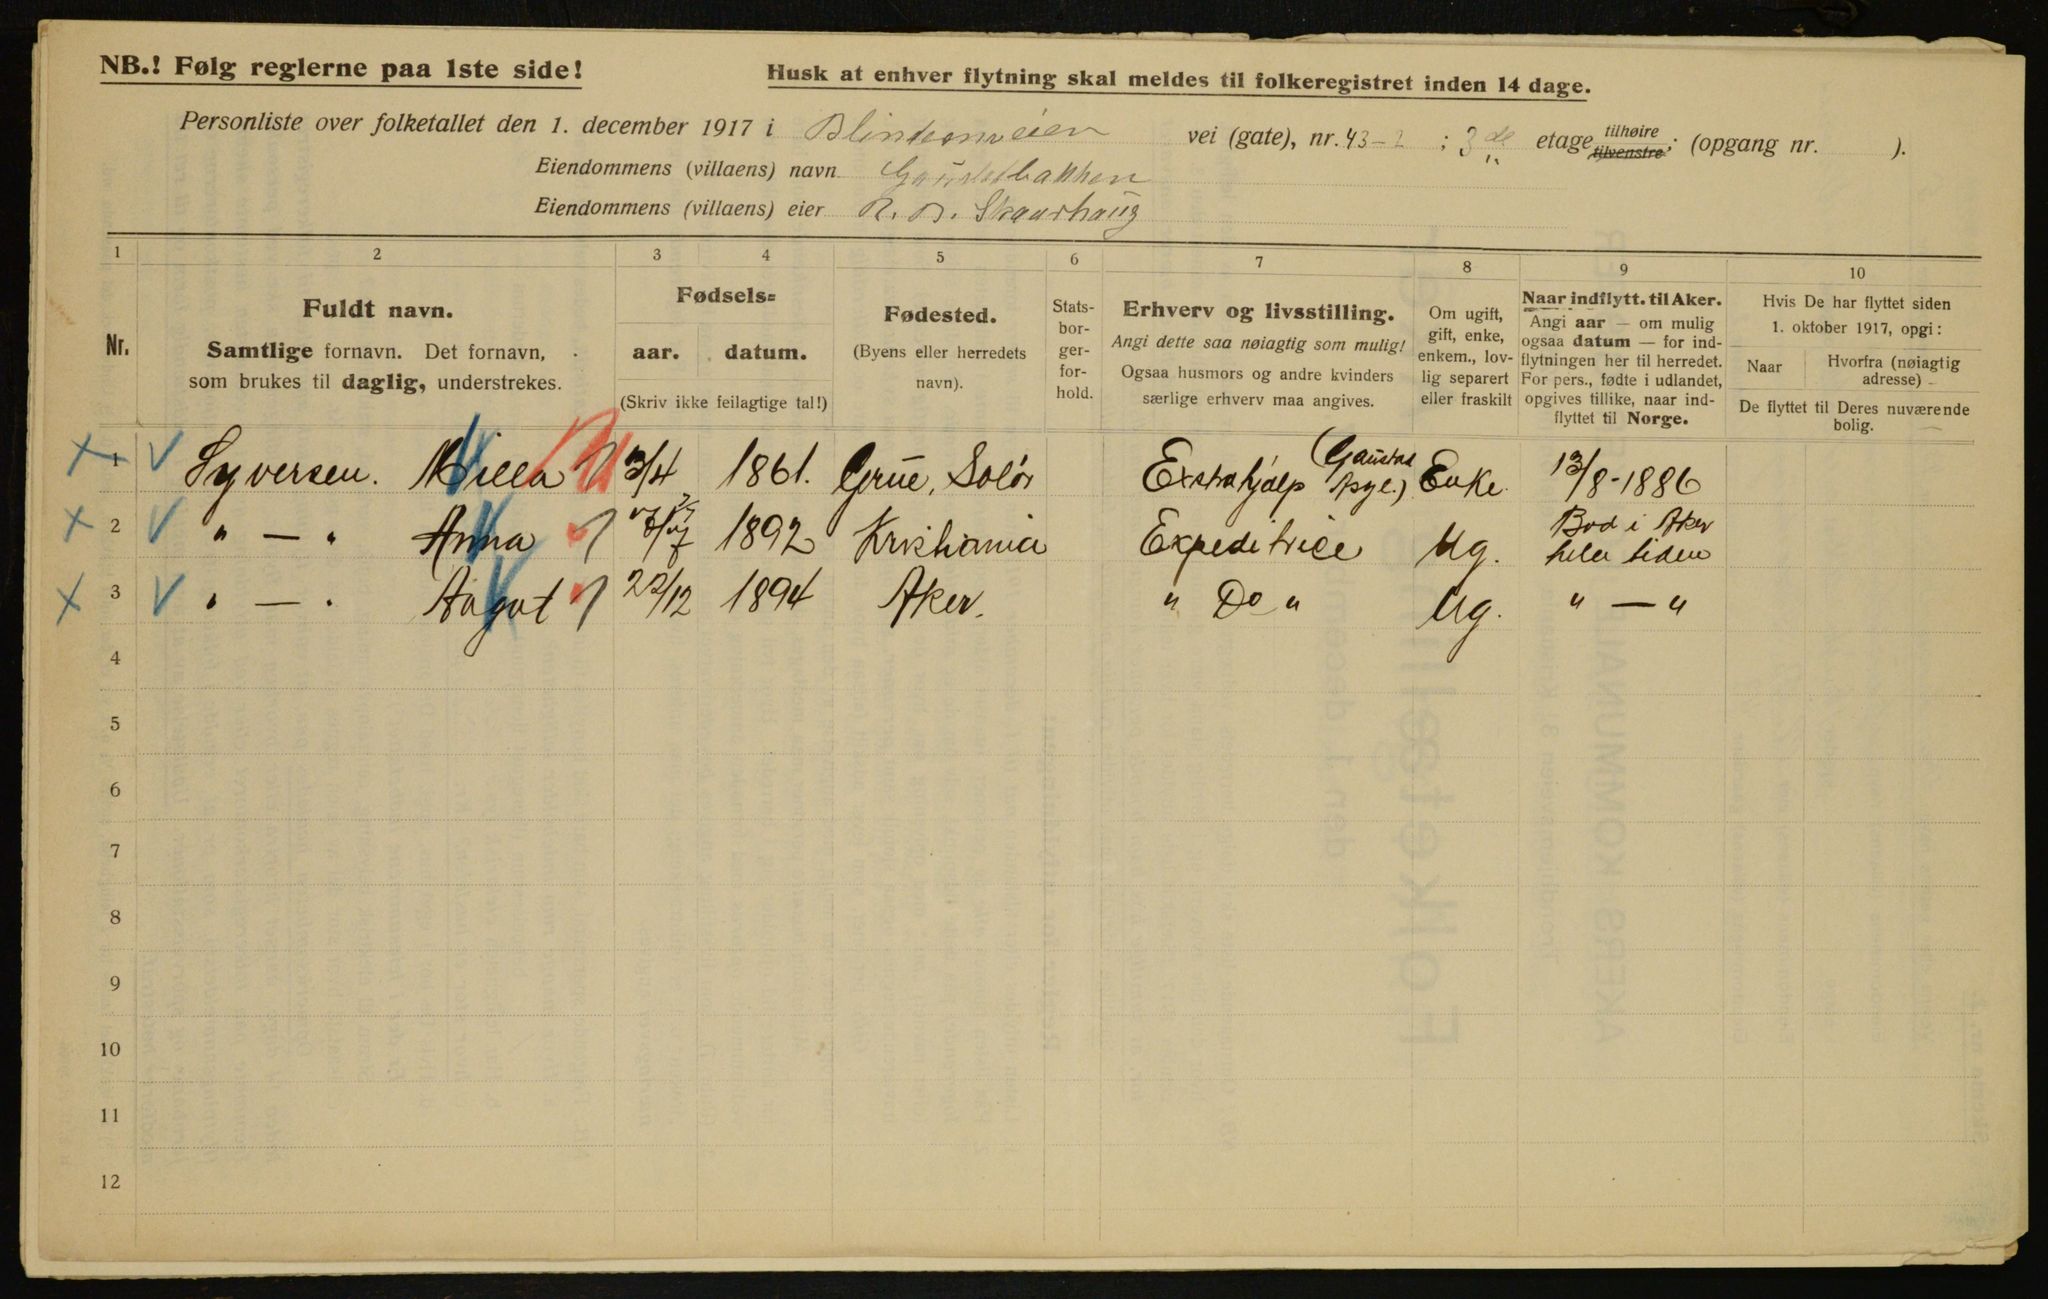 NB.! Følg reglerne paa 1ste side!
Husk at enhver flytning skal meldes til folkeregistret inden 14 dage.
Personliste over folketallet den 1. december 1917 i Blindernveien vei (gate), nr. 43-2 ; 3de etage tilhøire tilvenstre ; (opgang nr. ).
Eiendommens (villaens) navn Gaustadbakken
Eiendommens (villaens) eier R. B. Skaarhaug
1 2 3 4 5 6 7 8 9 10
Nr.
Fuldt navn.
Samtlige fornavn. Det fornavn,
som brukes til daglig, understrekes.
Fødsels-
aar. datum.
(Skriv ikke feilagtige tal!)
Fødested.
(Byens eller herredets
navn).
Stats-
bor-
ger-
for-
hold.
Erhverv og livsstilling.
Angi dette saa nøiagtig som mulig!
Ogsaa husmors og andre kvinders
særlige erhverv maa angives.
Om ugift,
gift, enke,
enkem., lov-
lig separert
eller fraskilt
Naar indflytt. til Aker.
Angi aar — om mulig
ogsaa datum — for ind-
flytningen her til herredet.
For pers., fødte i udlandet,
opgives tillike, naar ind-
flyttet til Norge.
Hvis De har flyttet siden
1. oktober 1917, opgi:
Naar
Hvorfra (nøiagtig
adresse)
De flyttet til Deres nuværende
bolig.
1 Syversen. Milla 3/4 1861. Grue, Solør Exstrahjælp (Gaustad Asyl.) Enke. 13/8-1886
2 " — " Anna 1892 Kristiania Expeditrice Ug. Bod i Aker hele tiden
3 " — " Aagot 22/12 1894 Aker. " Do " Ug. " — "
4
5
6
7
8
9
10
11
12